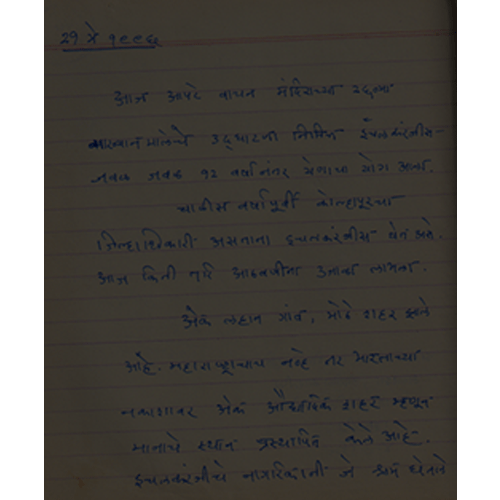 २१ मे १९९६
आज आपटे वाचन मंदिराच्या २६व्या
व्याख्यानमालेचे उद्घाटना निमित्त इचलकरंजीस
जवळ जवळ १२ वर्षानंतर येण्याचा योग आला.
चाळीस वर्षापूर्वी कोल्हापूरचा
जिल्हाधिकारी असताना इचलकरंजीस येत असे.
आज किती तरी आठवणींना उजाळा लाभला.
अेक लहान गांव, मोठे शहर झाले
आहे. महाराष्ट्राचाच नव्हे तर भारताच्या
नकाशावर अेक औद्योगिक शहर म्हणून
मानाचे स्थान प्रस्थापित केले आहे.
इचलकरंजीचे नागरिकांनी जे श्रम घेतले